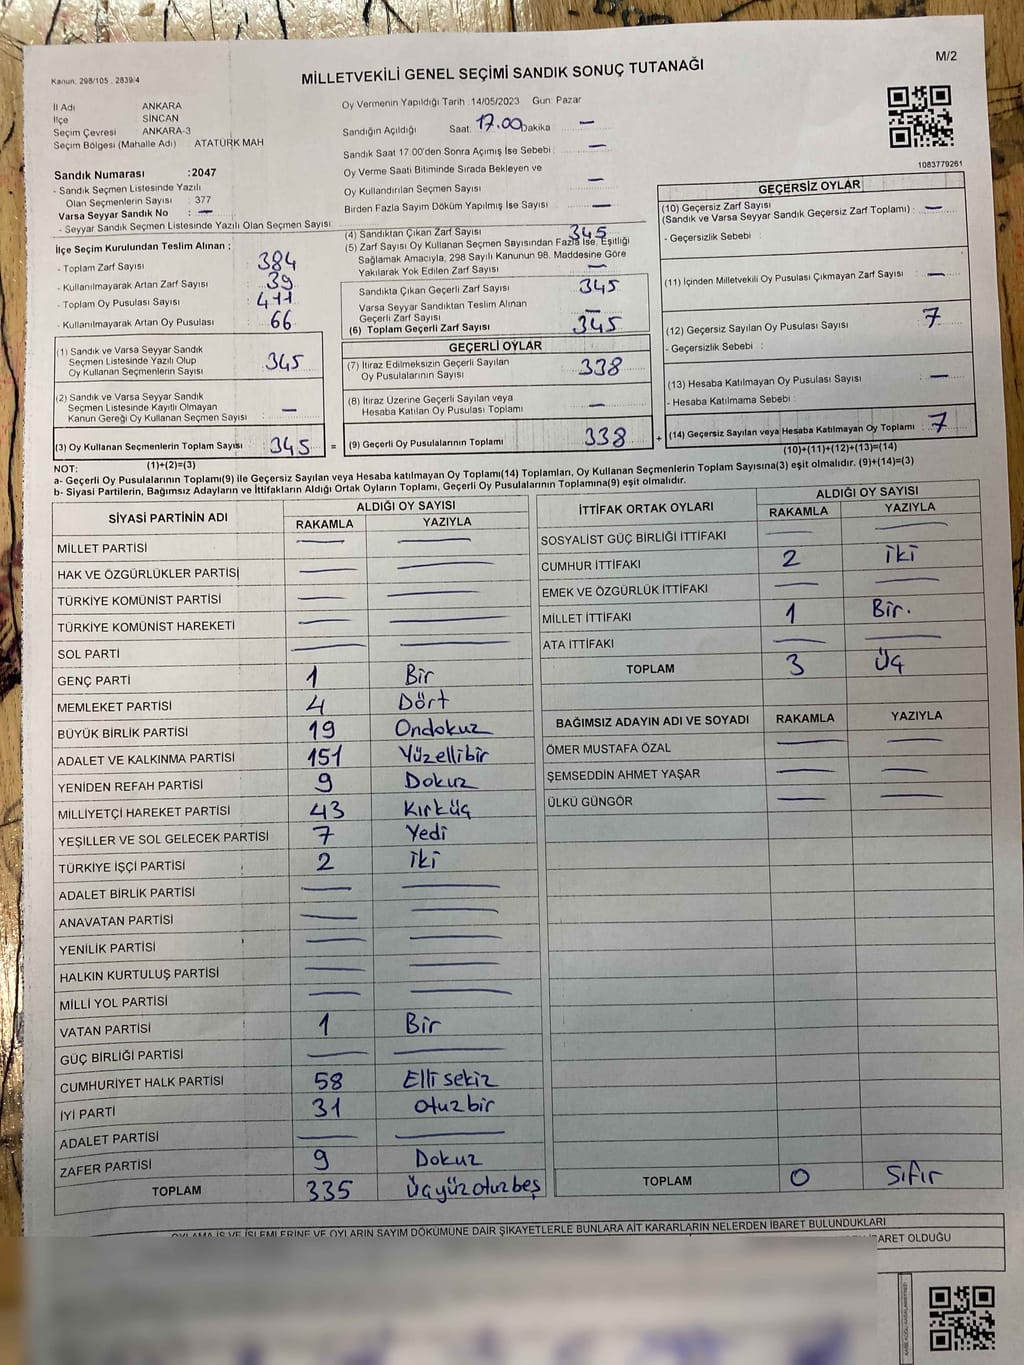 Kanun, 298/105 , 2839/4
MİLLETVEKİLİ GENEL SEÇİMİ SANDIK SONUÇ TUTANAĞI
M/2
İl Adı ANKARA
İlçe SİNCAN
Seçim Çevresi ANKARA-3
Seçim Bölgesi (Mahalle Adı) ATATÜRK MAH
Sandık Numarası :2047
- Sandık Seçmen Listesinde Yazılı
Olan Seçmenlerin Sayısı : 377
Varsa Seyyar Sandık No : —
- Seyyar Sandık Seçmen Listesinde Yazılı Olan Seçmen Sayısı
Oy Vermenin Yapıldığı Tarih :14/05/2023 Gün: Pazar
Sandığın Açıldığı Saat: 17.00 Dakika —
Sandık Saat 17:00'den Sonra Açımış İse Sebebi : —
Oy Verme Saati Bitiminde Sırada Bekleyen ve
Oy Kullandırılan Seçmen Sayısı —
Birden Fazla Sayım Döküm Yapılmış İse Sayısı —
1083779261
İlçe Seçim Kurulundan Teslim Alınan :
- Toplam Zarf Sayısı 384
- Kullanılmayarak Artan Zarf Sayısı : 39
- Toplam Oy Pusulası Sayısı : 411
- Kullanılmayarak Artan Oy Pusulası : 66
(1) Sandık ve Varsa Seyyar Sandık
Seçmen Listesinde Yazılı Olup
Oy Kullanan Seçmenlerin Sayısı : 345
(2) Sandık ve Varsa Seyyar Sandık
Seçmen Listesinde Kayıtlı Olmayan
Kanun Gereği Oy Kullanan Seçmen Sayısı : —
(3) Oy Kullanan Seçmenlerin Toplam Sayısı : 345 =
(1)+(2)=(3)
(4) Sandıktan Çıkan Zarf Sayısı 345
(5) Zarf Sayısı Oy Kullanan Seçmen Sayısından Fazla İse, Eşitliği
Sağlamak Amacıyla, 298 Sayılı Kanunun 98. Maddesine Göre
Yakılarak Yok Edilen Zarf Sayısı —
Sandıkta Çıkan Geçerli Zarf Sayısı 345
Varsa Seyyar Sandıktan Teslim Alınan
Geçerli Zarf Sayısı —
(6) Toplam Geçerli Zarf Sayısı 345
GEÇERLİ OYLAR
(7) İtiraz Edilmeksizin Geçerli Sayılan
Oy Pusulalarının Sayısı 338
(8) İtiraz Üzerine Geçerli Sayılan veya
Hesaba Katılan Oy Pusulası Toplamı —
(9) Geçerli Oy Pusulalarının Toplamı 338 +
GEÇERSİZ OYLAR
(10) Geçersiz Zarf Sayısı
(Sandık ve Varsa Seyyar Sandık Geçersiz Zarf Toplamı) : —
- Geçersizlik Sebebi :
(11) İçinden Milletvekili Oy Pusulası Çıkmayan Zarf Sayısı : —
(12) Geçersiz Sayılan Oy Pusulası Sayısı : 7
- Geçersizlik Sebebi :
(13) Hesaba Katılmayan Oy Pusulası Sayısı : —
- Hesaba Katılmama Sebebi :
(14) Geçersiz Sayılan veya Hesaba Katılmayan Oy Toplamı : 7
(10)+(11)+(12)+(13)=(14)
NOT:
a- Geçerli Oy Pusulalarının Toplamı(9) ile Geçersiz Sayılan veya Hesaba katılmayan Oy Toplamı(14) Toplamları, Oy Kullanan Seçmenlerin Toplam Sayısına(3) eşit olmalıdır. (9)+(14)=(3)
b- Siyasi Partilerin, Bağımsız Adayların ve İttifakların Aldığı Ortak Oyların Toplamı, Geçerli Oy Pusulalarının Toplamına(9) eşit olmalıdır.
SİYASİ PARTİNİN ADI ALDIĞI OY SAYISI
RAKAMLA YAZIYLA
MİLLET PARTİSİ — —
HAK VE ÖZGÜRLÜKLER PARTİSİ — —
TÜRKİYE KOMÜNİST PARTİSİ — —
TÜRKİYE KOMÜNİST HAREKETİ — —
SOL PARTİ — —
GENÇ PARTİ 1 Bir
MEMLEKET PARTİSİ 4 Dört
BÜYÜK BİRLİK PARTİSİ 19 Ondokuz
ADALET VE KALKINMA PARTİSİ 151 Yüzellibir
YENİDEN REFAH PARTİSİ 9 Dokuz
MİLLİYETÇİ HAREKET PARTİSİ 43 Kırküç
YEŞİLLER VE SOL GELECEK PARTİSİ 7 Yedi
TÜRKİYE İŞÇİ PARTİSİ 2 iki
ADALET BİRLİK PARTİSİ — —
ANAVATAN PARTİSİ — —
YENİLİK PARTİSİ — —
HALKIN KURTULUŞ PARTİSİ — —
MİLLİ YOL PARTİSİ — —
VATAN PARTİSİ 1 Bir
GÜÇ BİRLİĞİ PARTİSİ — —
CUMHURİYET HALK PARTİSİ 58 Elli sekiz
İYİ PARTİ 31 otuzbir
ADALET PARTİSİ — —
ZAFER PARTİSİ 9 Dokuz
TOPLAM 335 Üçyüzotuzbeş
İTTİFAK ORTAK OYLARI ALDIĞI OY SAYISI
RAKAMLA YAZIYLA
SOSYALİST GÜÇ BİRLİĞİ İTTİFAKI — —
CUMHUR İTTİFAKI 2 iki
EMEK VE ÖZGÜRLÜK İTTİFAKI — —
MİLLET İTTİFAKI 1 Bir.
ATA İTTİFAKI — —
TOPLAM 3 Üç
BAĞIMSIZ ADAYIN ADI VE SOYADI RAKAMLA YAZIYLA
ÖMER MUSTAFA ÖZAL — —
ŞEMSEDDİN AHMET YAŞAR — —
ÜLKÜ GÜNGÖR — —
TOPLAM 0 Sıfır
OYLAMA İŞ VE İŞLEMLERİNE VE OYLARIN SAYIM DÖKÜMÜNE DAİR ŞİKAYETLERLE BUNLARA AİT KARARLARIN NELERDEN İBARET BULUNDUKLARI
İBARET OLDUĞU